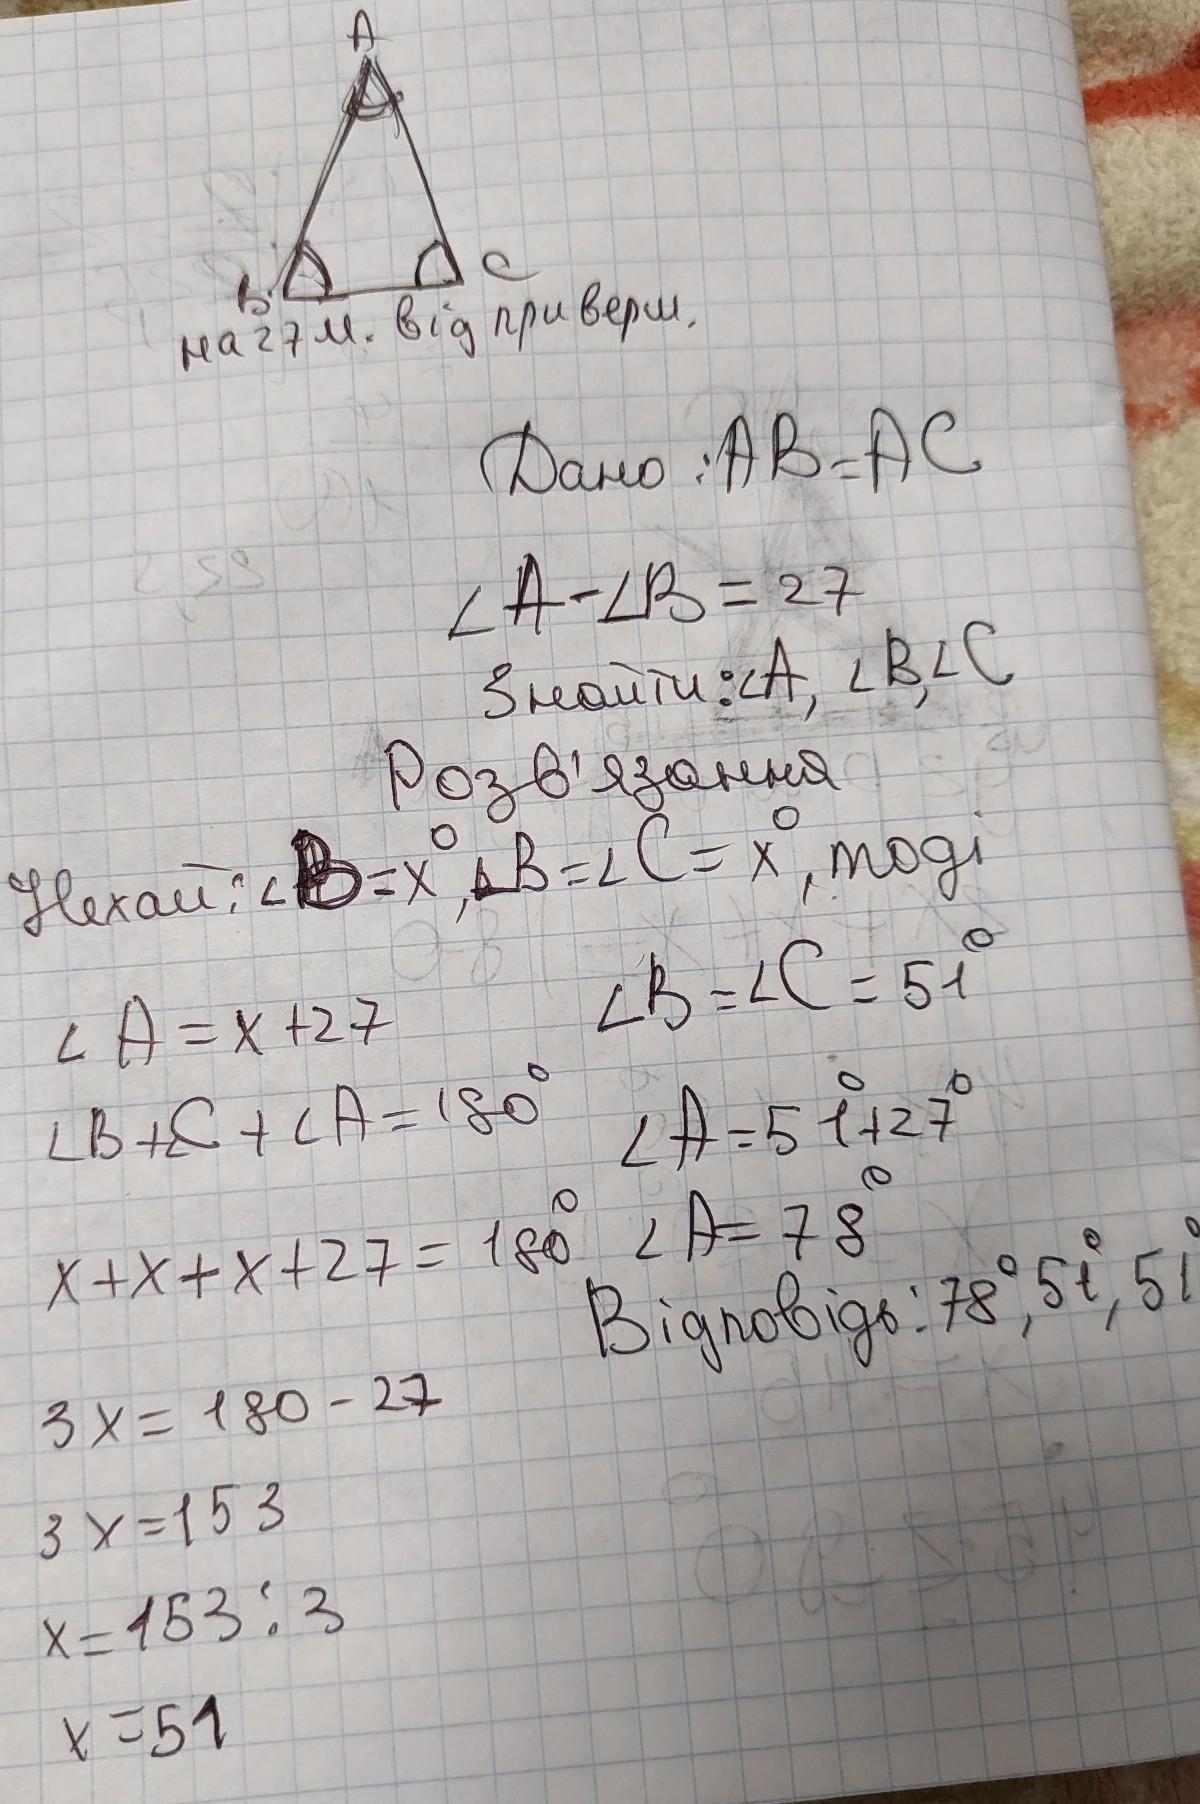 A
B
C
на 27 м. від при верш.
Дано: AB=AC
∠A-∠B=27
Знайти:∠A, ∠B,∠C
Розв'язання
Нехай: ∠B=x°, ∠B=∠C=x°, тоді
∠A=x+27
∠B+∠C+∠A=180°
x+x+x+27=180°
3x=180-27
3x=153
x=153:3
x=51
∠B=∠C=51°
∠A=51°+27°
∠A=78°
Відповідь: 78°, 51°, 51°